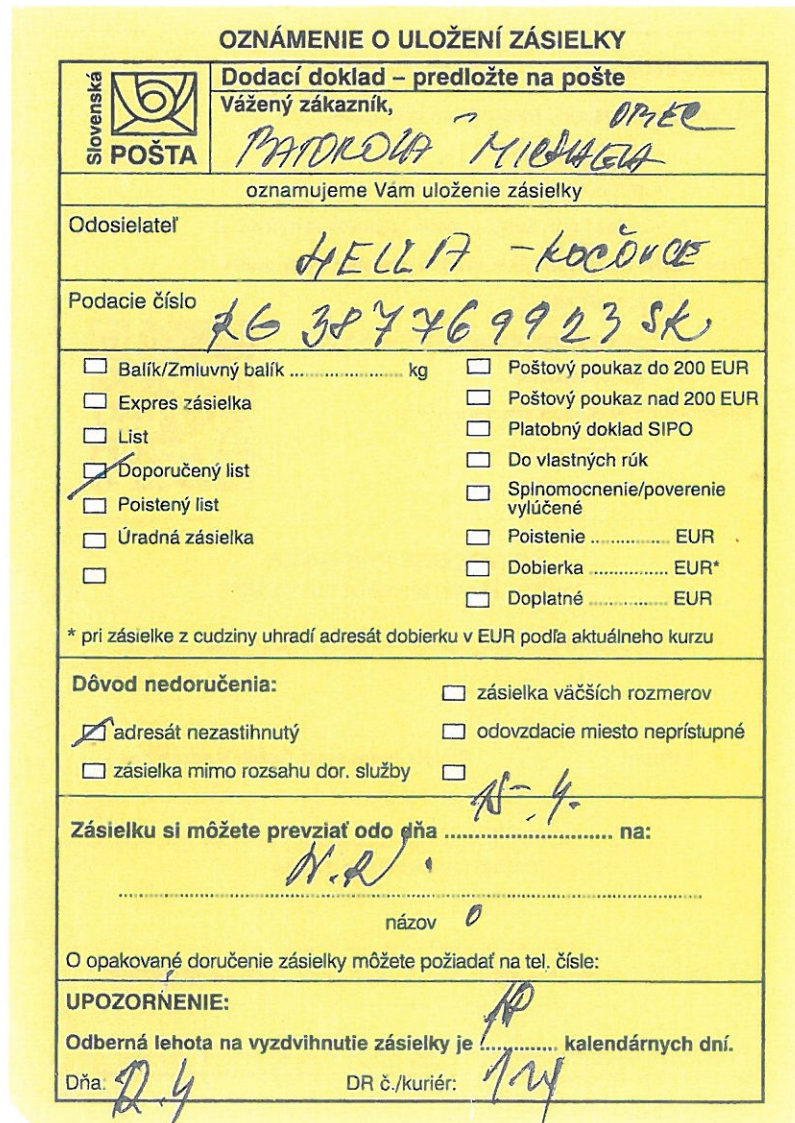 OZNÁMENIE O ULOŽENÍ ZÁSIELKY
Slovenská
POŠTA
Dodací doklad – predložte na pošte
Vážený zákazník,
OBEC
oznamujeme Vám uloženie zásielky
Odosielateľ
HELLA - KOČOVCE
Podacie číslo
387769923 SK
Balík/Zmluvný balík ...................... kg
Expres zásielka
List
Doporučený list
Poistený list
Úradná zásielka
Poštový poukaz do 200 EUR
Poštový poukaz nad 200 EUR
Platobný doklad SIPO
Do vlastných rúk
Splnomocnenie/poverenie
vylúčené
Poistenie ............... EUR
Dobierka ............... EUR*
Doplatné ............... EUR
* pri zásielke z cudziny uhradí adresát dobierku v EUR podľa aktuálneho kurzu
Dôvod nedoručenia:
adresát nezastihnutý
zásielka mimo rozsahu dor. služby
zásielka väčších rozmerov
odovzdacie miesto neprístupné
Zásielku si môžete prevziať odo dňa 15.4. na:
názov
O opakované doručenie zásielky môžete požiadať na tel. čísle:
UPOZORNENIE:
Odberná lehota na vyzdvihnutie zásielky je ............ kalendárnych dní.
Dňa: 12.4
DR č./kuriér: